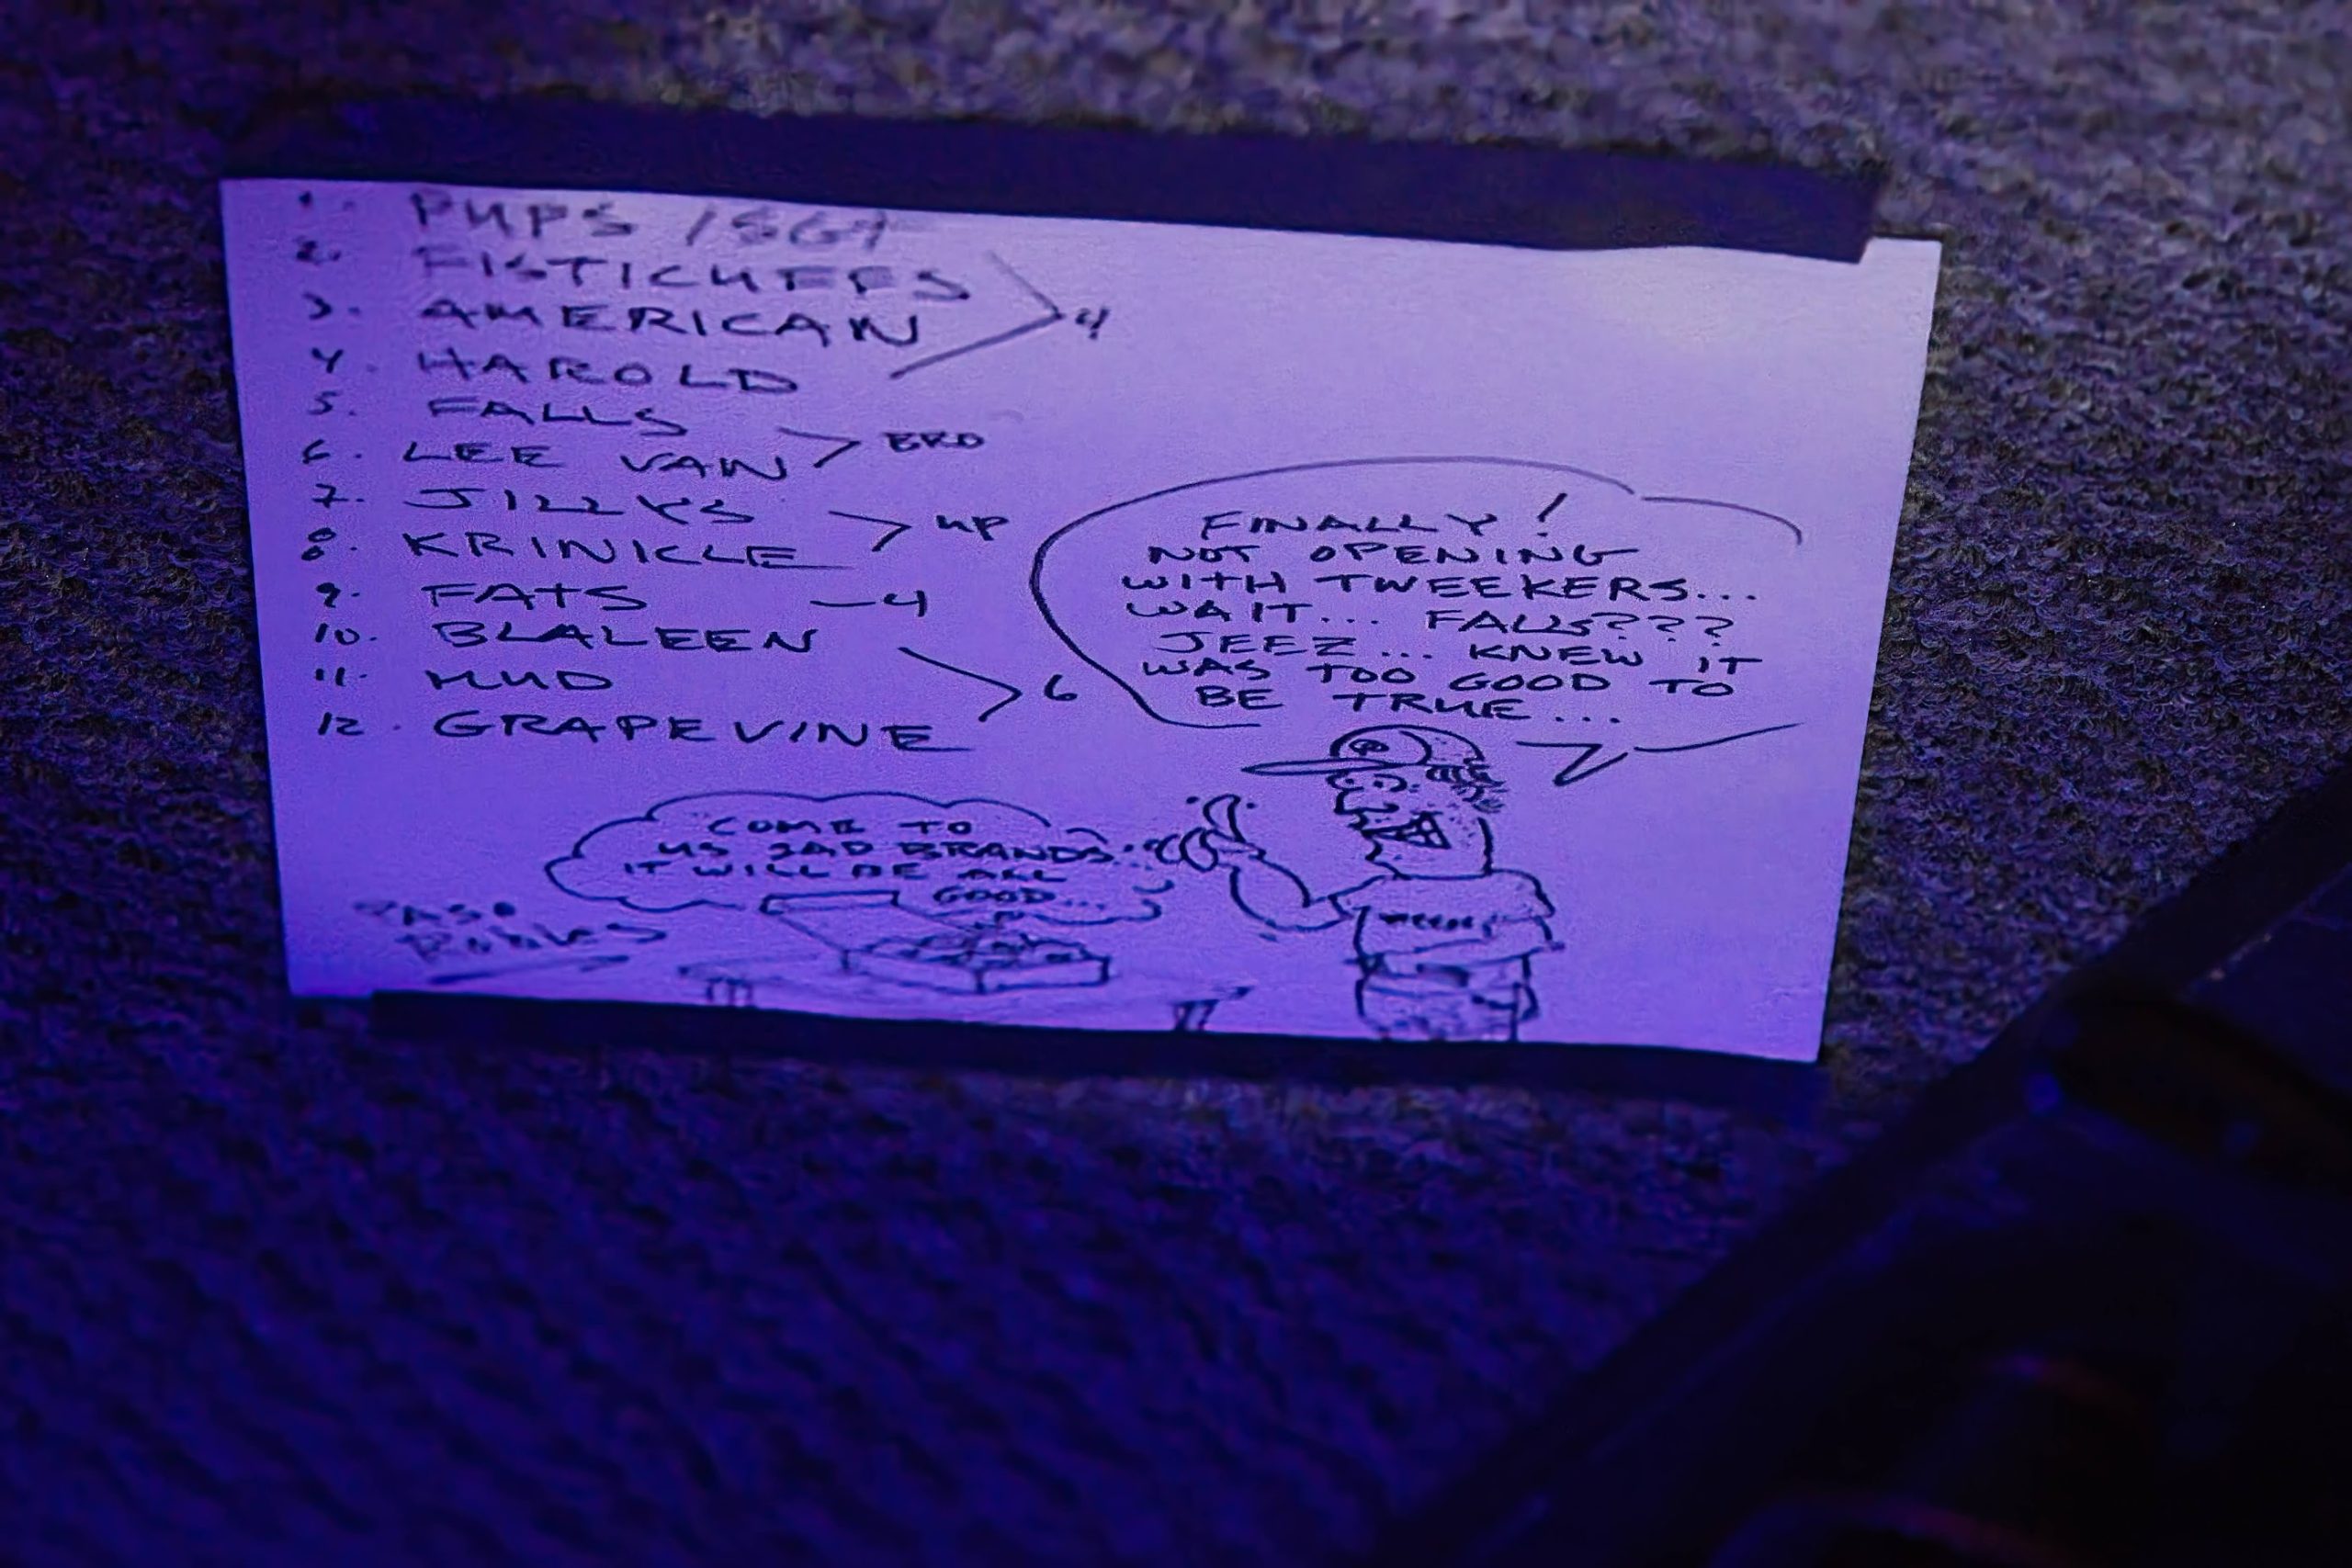 1. PUPS / SGT
2. FISTICUFFS
3. AMERICAN
4
4. HAROLD
5. FALLS
6. LEE VAN
BRD
7. JILLYS
8. KRINKLE
UP
9. FATS — 4
10. BLALEEN
11. MUD
6
12. GRAPEVINE
FINALLY!
NOT OPENING
WITH TWEEKERS...
WAIT... FALLS???
JEEZ... KNEW IT
WAS TOO GOOD TO
BE TRUE...
COME TO
US SAD BRANDS.
IT WILL BE ALL
GOOD...
PASO
ROBLES